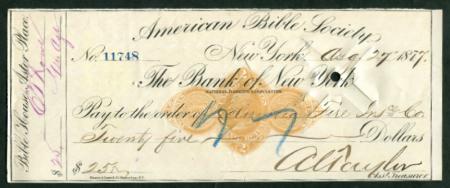 American Bible Society,
No. 11748 New York, 27 1877.
The Bank of New York
NATIONAL BANKING ASSOCIATION
Pay to the order of Fire Ins. Co.
Twenty five Dollars
$ 25
Asst. Treasurer
Bible House, Astor Place.
$ 25